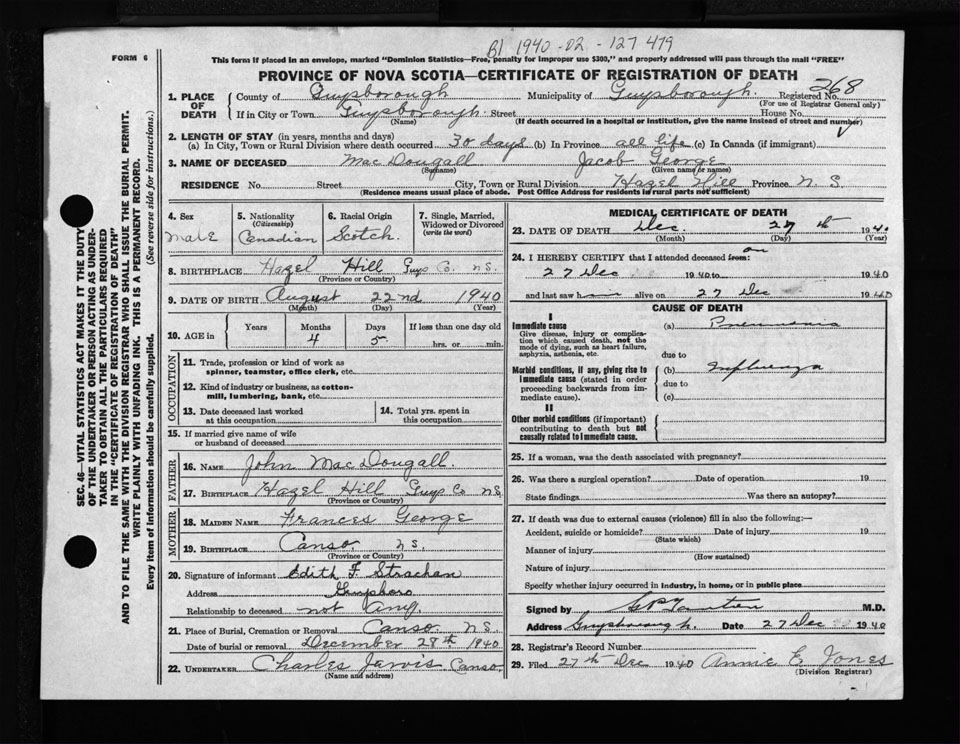 B1 1940-02-127479
FORM 6
This form if placed in an envelope, marked "Dominion Statistics—Free, penalty for improper use $300," and properly addressed will pass through the mail "FREE"
PROVINCE OF NOVA SCOTIA—CERTIFICATE OF REGISTRATION OF DEATH
268
1. PLACE OF DEATH County of Guysborough Municipality of Guysborough Registered No.
(For use of Registrar General only)
If in City or Town Guysborough Street House No.
(Name) (If death occurred in a hospital or institution, give the name instead of street and number)
2. LENGTH OF STAY (in years, months and days)
(a) In City, Town or Rural Division where death occurred 30 days (b) In Province all life (c) In Canada (if immigrant)
3. NAME OF DECEASED MacDougall Jacob George
(Surname) (Given name or names)
RESIDENCE No. Street City, Town or Rural Division Hazel Hill Province N.S.
(Residence means usual place of abode. Post Office Address for residents in rural parts not sufficient)
4. Sex Male
5. Nationality (Citizenship) Canadian
6. Racial Origin Scotch.
7. Single, Married, Widowed or Divorced (write the word)
8. BIRTHPLACE Hazel Hill Guys Co. N.S.
(Province or Country)
9. DATE OF BIRTH August 22nd 1940
(Month) (Day) (Year)
10. AGE in Years Months Days If less than one day old
4 5 hrs. or min.
OCCUPATION
11. Trade, profession or kind of work as spinner, teamster, office clerk, etc.
12. Kind of industry or business, as cotton-mill, lumbering, bank, etc.
13. Date deceased last worked at this occupation
14. Total yrs. spent in this occupation
15. If married give name of wife or husband of deceased
FATHER
16. NAME John MacDougall.
17. BIRTHPLACE Hazel Hill Guys Co N.S.
(Province or Country)
MOTHER
18. MAIDEN NAME Frances George
19. BIRTHPLACE Canso N.S.
(Province or Country)
20. Signature of informant Edith F. Strachan
Address Guysboro
Relationship to deceased not any.
21. Place of Burial, Cremation or Removal Canso N.S.
Date of burial or removal December 28th 1940
22. UNDERTAKER Charles Jarvis Canso.
(Name and address)
MEDICAL CERTIFICATE OF DEATH
23. DATE OF DEATH Dec. 27th 1940
(Month) (Day) (Year)
24. I HEREBY CERTIFY that I attended deceased from: on
27 Dec 1940 to 1940
and last saw him alive on 27 Dec 1940
CAUSE OF DEATH
I
Immediate cause
Give disease, injury or complication which caused death, not the mode of dying, such as heart failure, asphyxia, asthenia, etc.
(a) Pneumonia
due to
Morbid conditions, if any, giving rise to immediate cause (stated in order proceeding backwards from immediate cause).
(b) Influenza
due to
(c)
II
Other morbid conditions (if important) contributing to death but not causally related to immediate cause.
25. If a woman, was the death associated with pregnancy?
26. Was there a surgical operation? Date of operation 19
State findings Was there an autopsy?
27. If death was due to external causes (violence) fill in also the following:—
Accident, suicide or homicide? Date of injury 19
(State which)
Manner of injury
(How sustained)
Nature of injury
Specify whether injury occurred in industry, in home, or in public place
Signed by M.D.
Address Guysborough. Date 27 Dec 1940
28. Registrar's Record Number
29. Filed 27th Dec 1940 Annie E. Jones
(Division Registrar)
SEC. 46—VITAL STATISTICS ACT MAKES IT THE DUTY
OF THE UNDERTAKER OR PERSON ACTING AS UNDER-
TAKER TO OBTAIN ALL THE PARTICULARS REQUIRED
IN THE "CERTIFICATE OF REGISTRATION OF DEATH"
AND TO FILE THE SAME WITH THE DIVISION REGISTRAR WHO SHALL ISSUE THE BURIAL PERMIT.
WRITE PLAINLY WITH UNFADING INK. THIS IS A PERMANENT RECORD.
Every item of information should be carefully supplied. (See reverse side for instructions.)